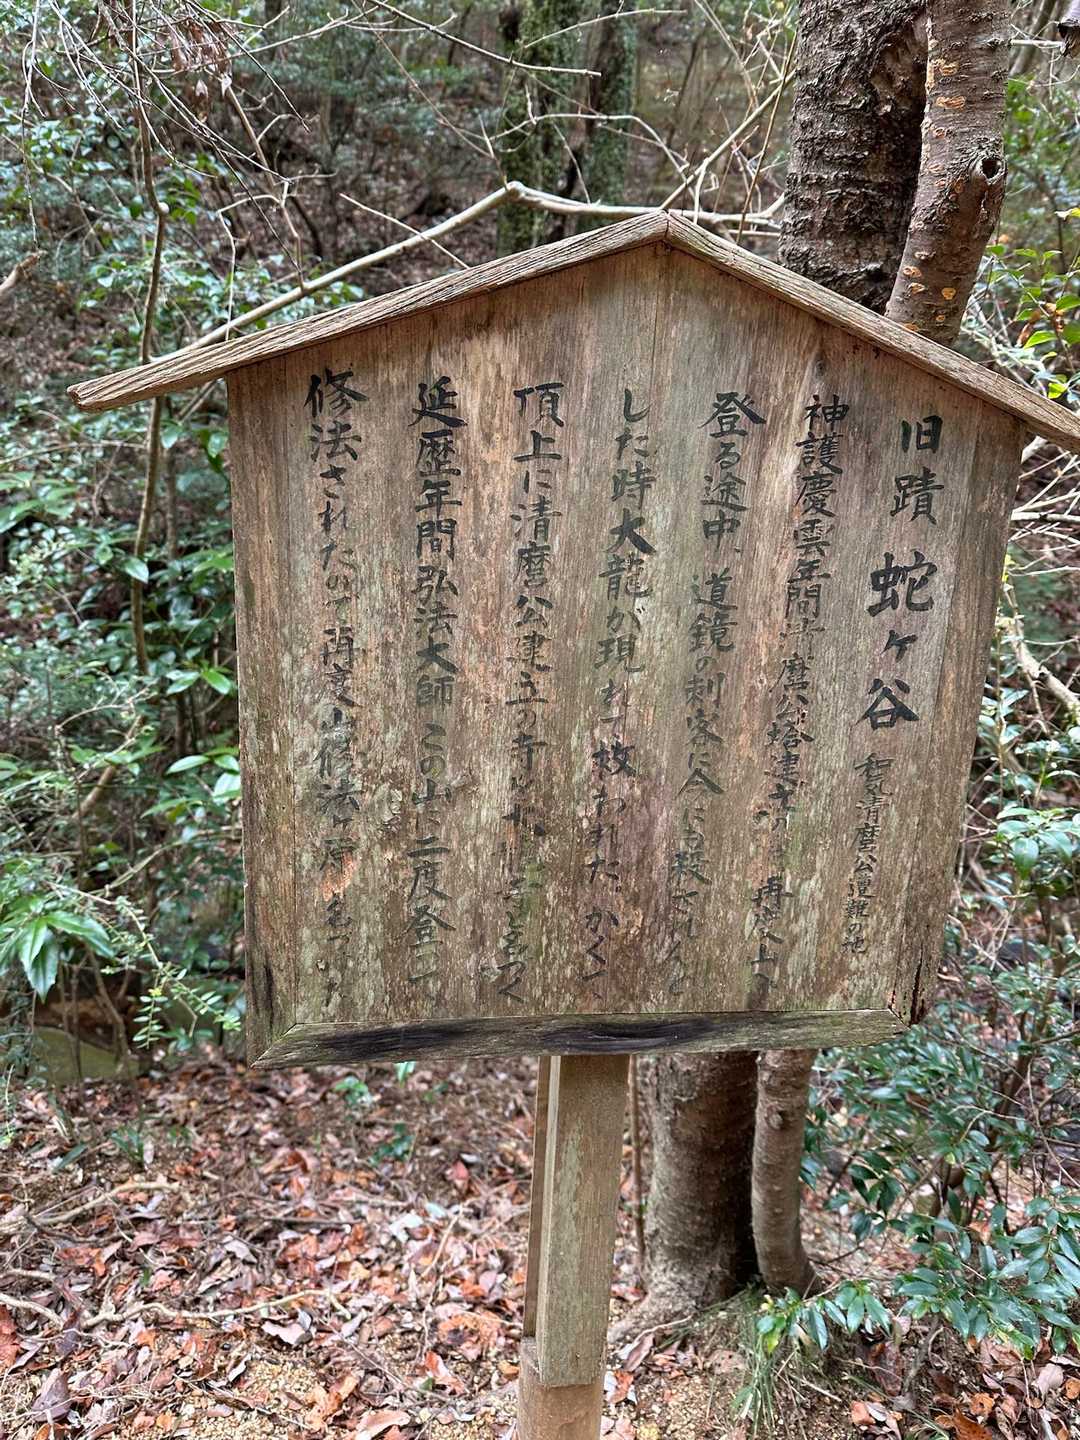 旧蹟 蛇ヶ谷 和気清麿公遭難の地
神護慶雲年間清麿公塔建立の 再度山へ
登る途中、道鏡の刺客に今にも殺されんと
した時大龍が現れて救われた。かくて
頂上に清麿公建立の寺を大 寺と名づく
延歴年間弘法大師この山に二度登って
修法されたので再度山修法ヶ原 名づいた